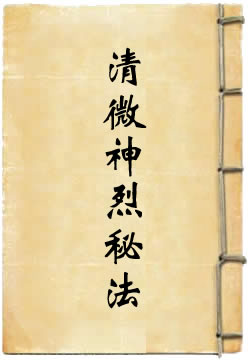 清微神烈秘法